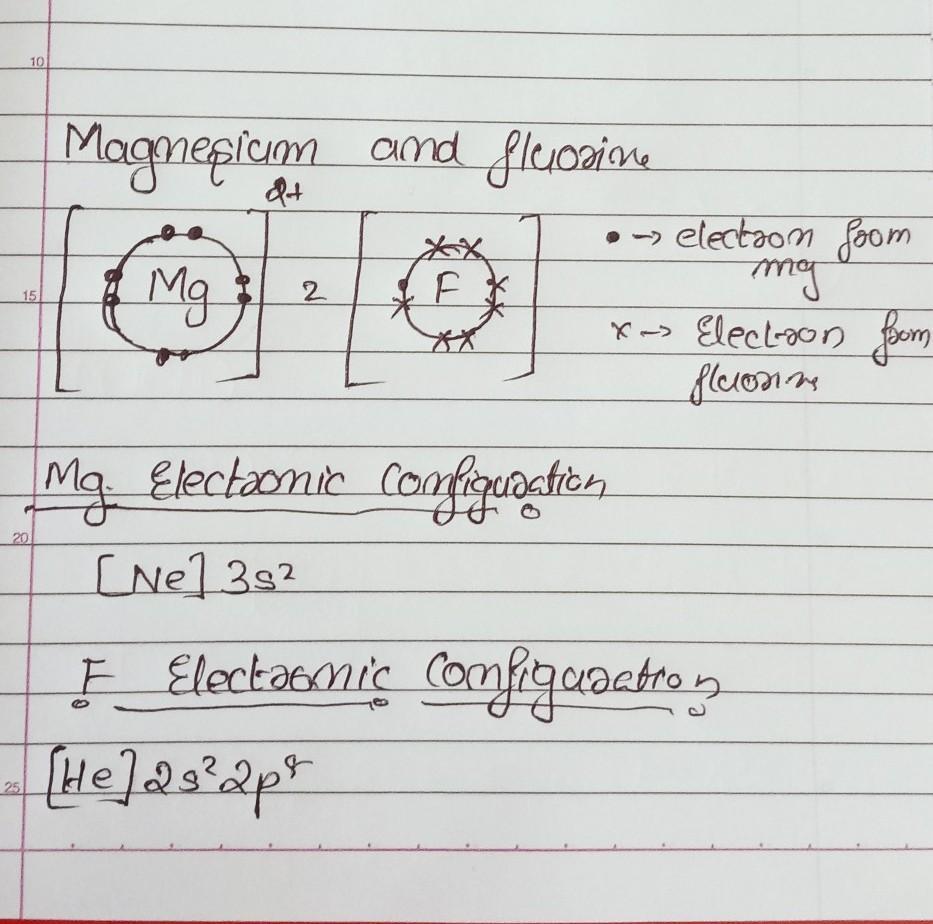 10
Magnesium and fluorine
2+
Mg 2 F
• → electron from
mg
15
x → Electron from
fluorine
Mg. Electronic Configuration
20
[Ne] 3s²
F Electronic Configuration
25
[He] 2s² 2p